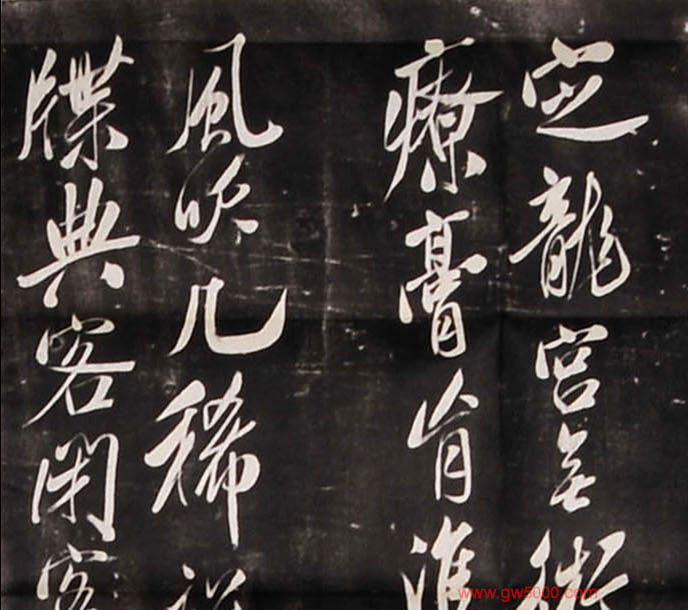 定龍宮無術
療膏肓
風吹几稀
牒典客閑
www.gw5000.com